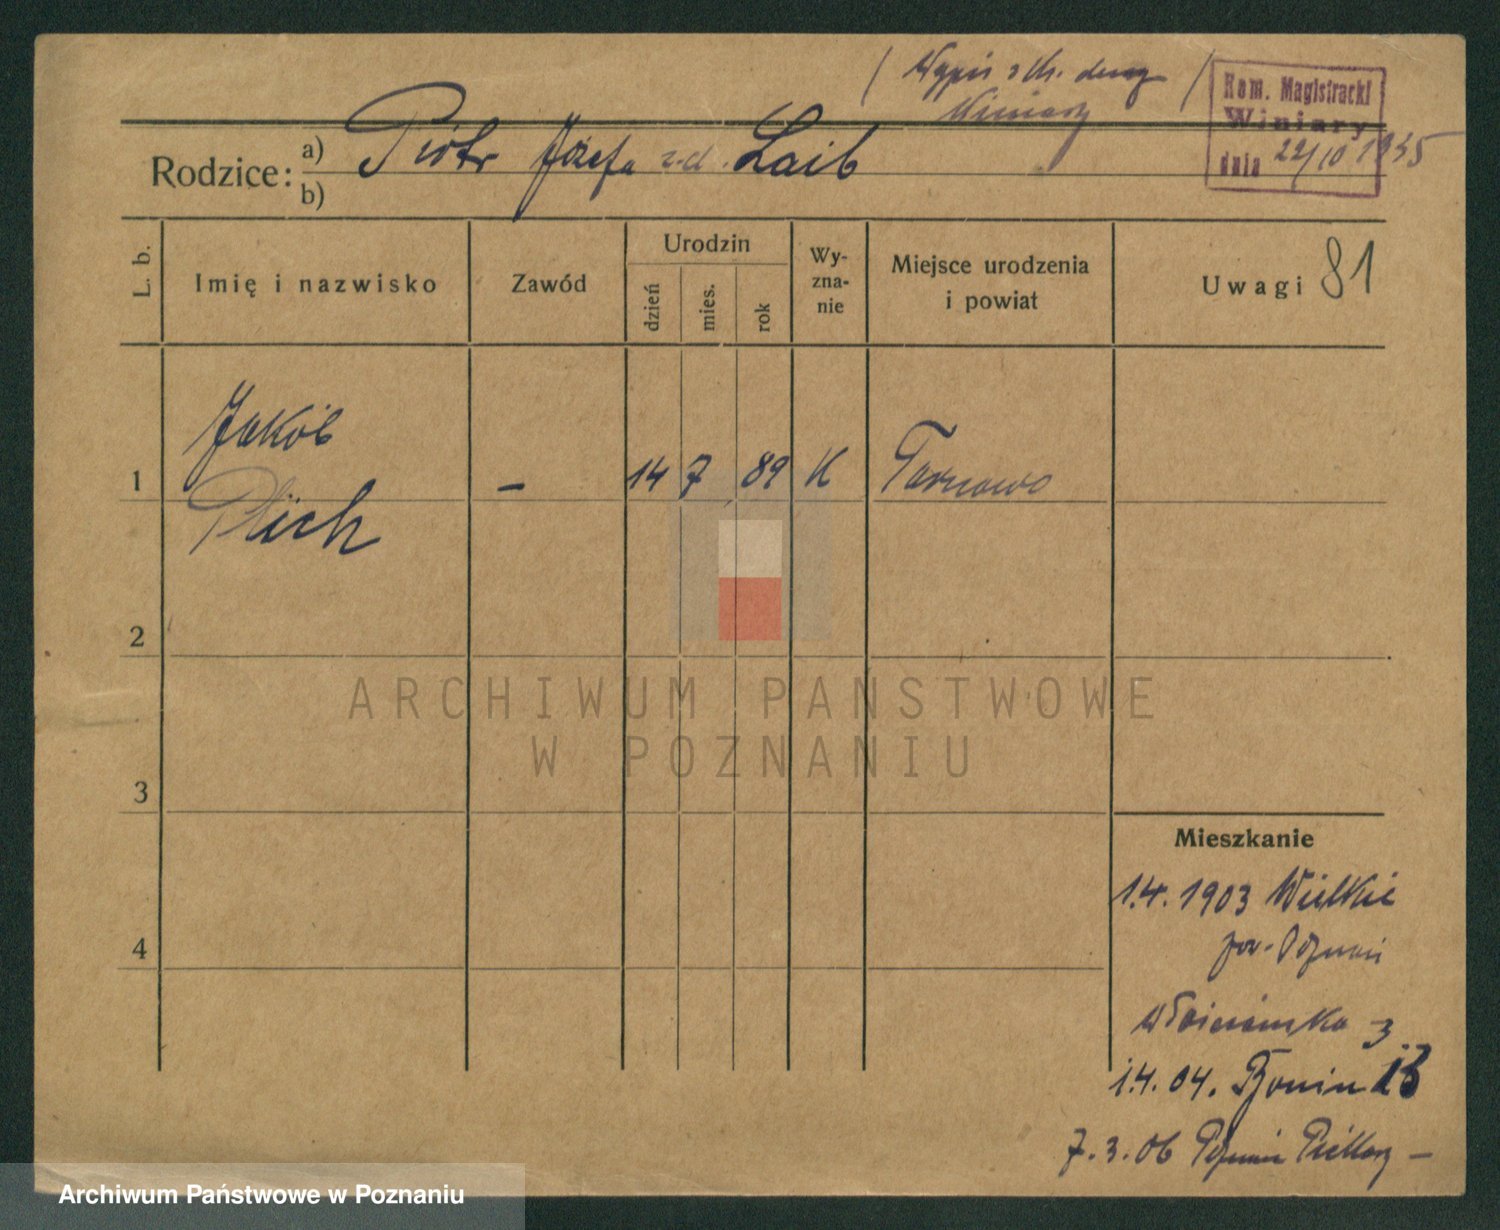 ( Wypis z Ks.
Winiary
Kom. Magistracki
Winiary
dnia 22/10 1935
Rodzice: a) Piotr Józefa z d. Laib
b)
L. b.
Imię i nazwisko
Zawód
Urodzin
dzień
mies.
rok
Wy-
zna-
nie
Miejsce urodzenia
i powiat
Uwagi 81
Jakób
1 – 14 7 89 K Tarnowo
Plich
2
3
4
Mieszkanie
1.4. 1903 Wielkie
pow. Poznań
3
1.4. 04. Bonin 13
7. 3. 06 Poznań Piekary –
ARCHIWUM PAŃSTWOWE
W POZNANIU
Archiwum Państwowe w Poznaniu